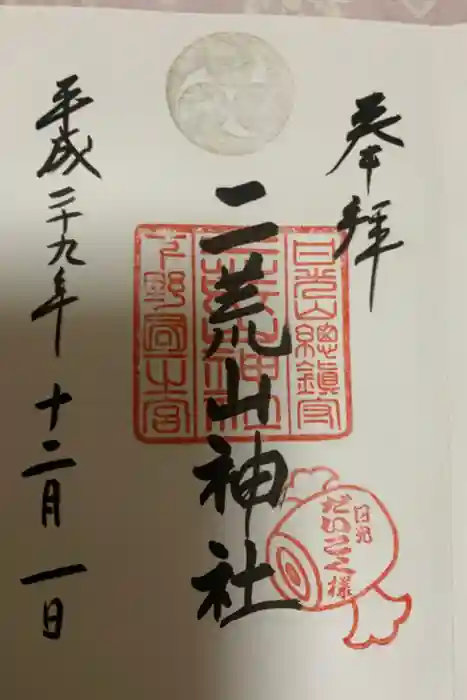 奉拝
日光山總鎮守
二荒山神社
下野國一之宮
日光
だいこく様
平成二十九年 十二月 一日